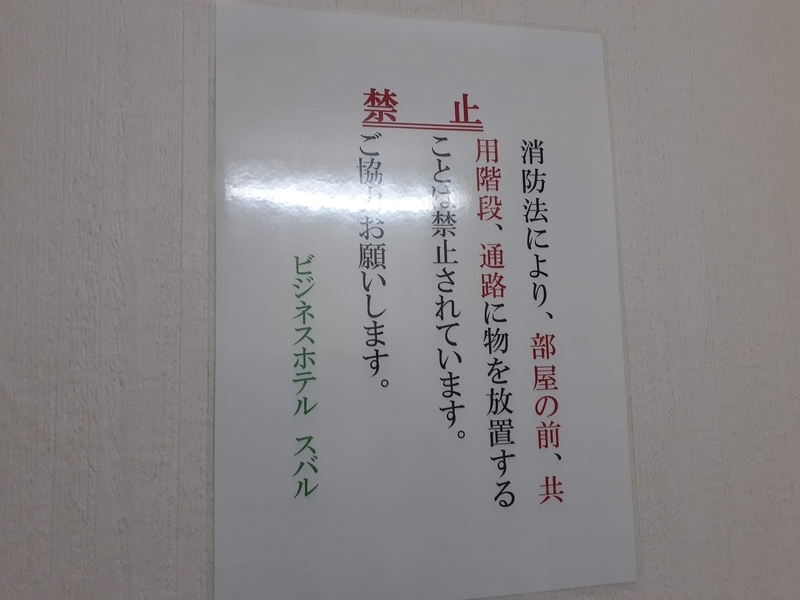 禁 止
消防法により、部屋の前、共
用階段、通路に物を放置する
ことは禁止されています。
ご協力お願いします。
ビジネスホテル スバル